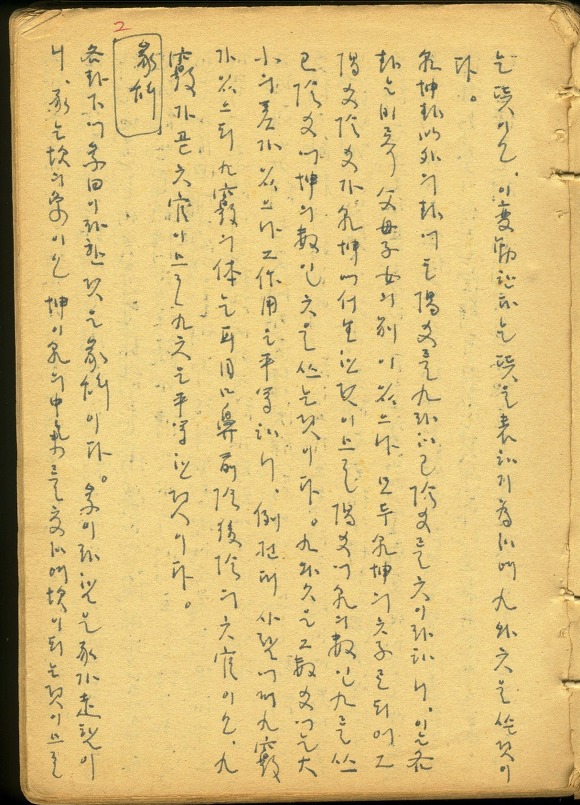 2
는 뜻이오, 이 變動하는 뜻을 表하기 爲하야 九와 六을 쓴 것이
다。
乾坤卦 以外의 卦에도 陽爻를 九라하고 陰爻를 六이라 하니, 이는 各
卦는 비록 父母子女의 別이 있으나 모두 乾坤의 六子로 되어 그
陽爻 陰爻가 乾坤에서 生한 것이므로 陽爻에 乾의 數인 九를 쓰
고 陰爻에 坤의 數인 六을 쓰는 것이다。九와 六은 그 數爻에는 大
小의 差가 있으나 그 作用은 平等하니, 例컨대 사람에게 九竅
가 있으되 九竅의 体는 耳目口鼻 前陰 後陰의 六官이오, 九
竅가 곧 六官이므로 九六은 平等한 것이다。
彖辭
各卦下에 彖曰이라 한 것은 彖辭이다。彖이라 함은 豕가 走함이
니, 豕는 坎의 象이오 坤이 乾의 中爻를 交하야 坎이 되는 것이므로